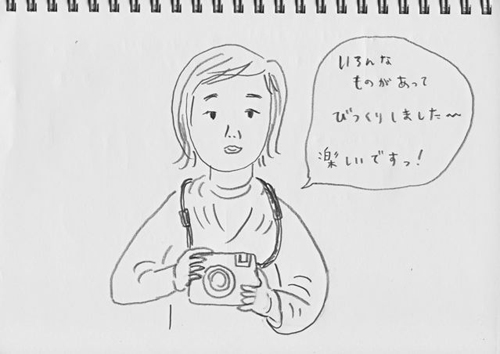 いろんな
ものがあって
びっくりしました〜
楽しいですっ!